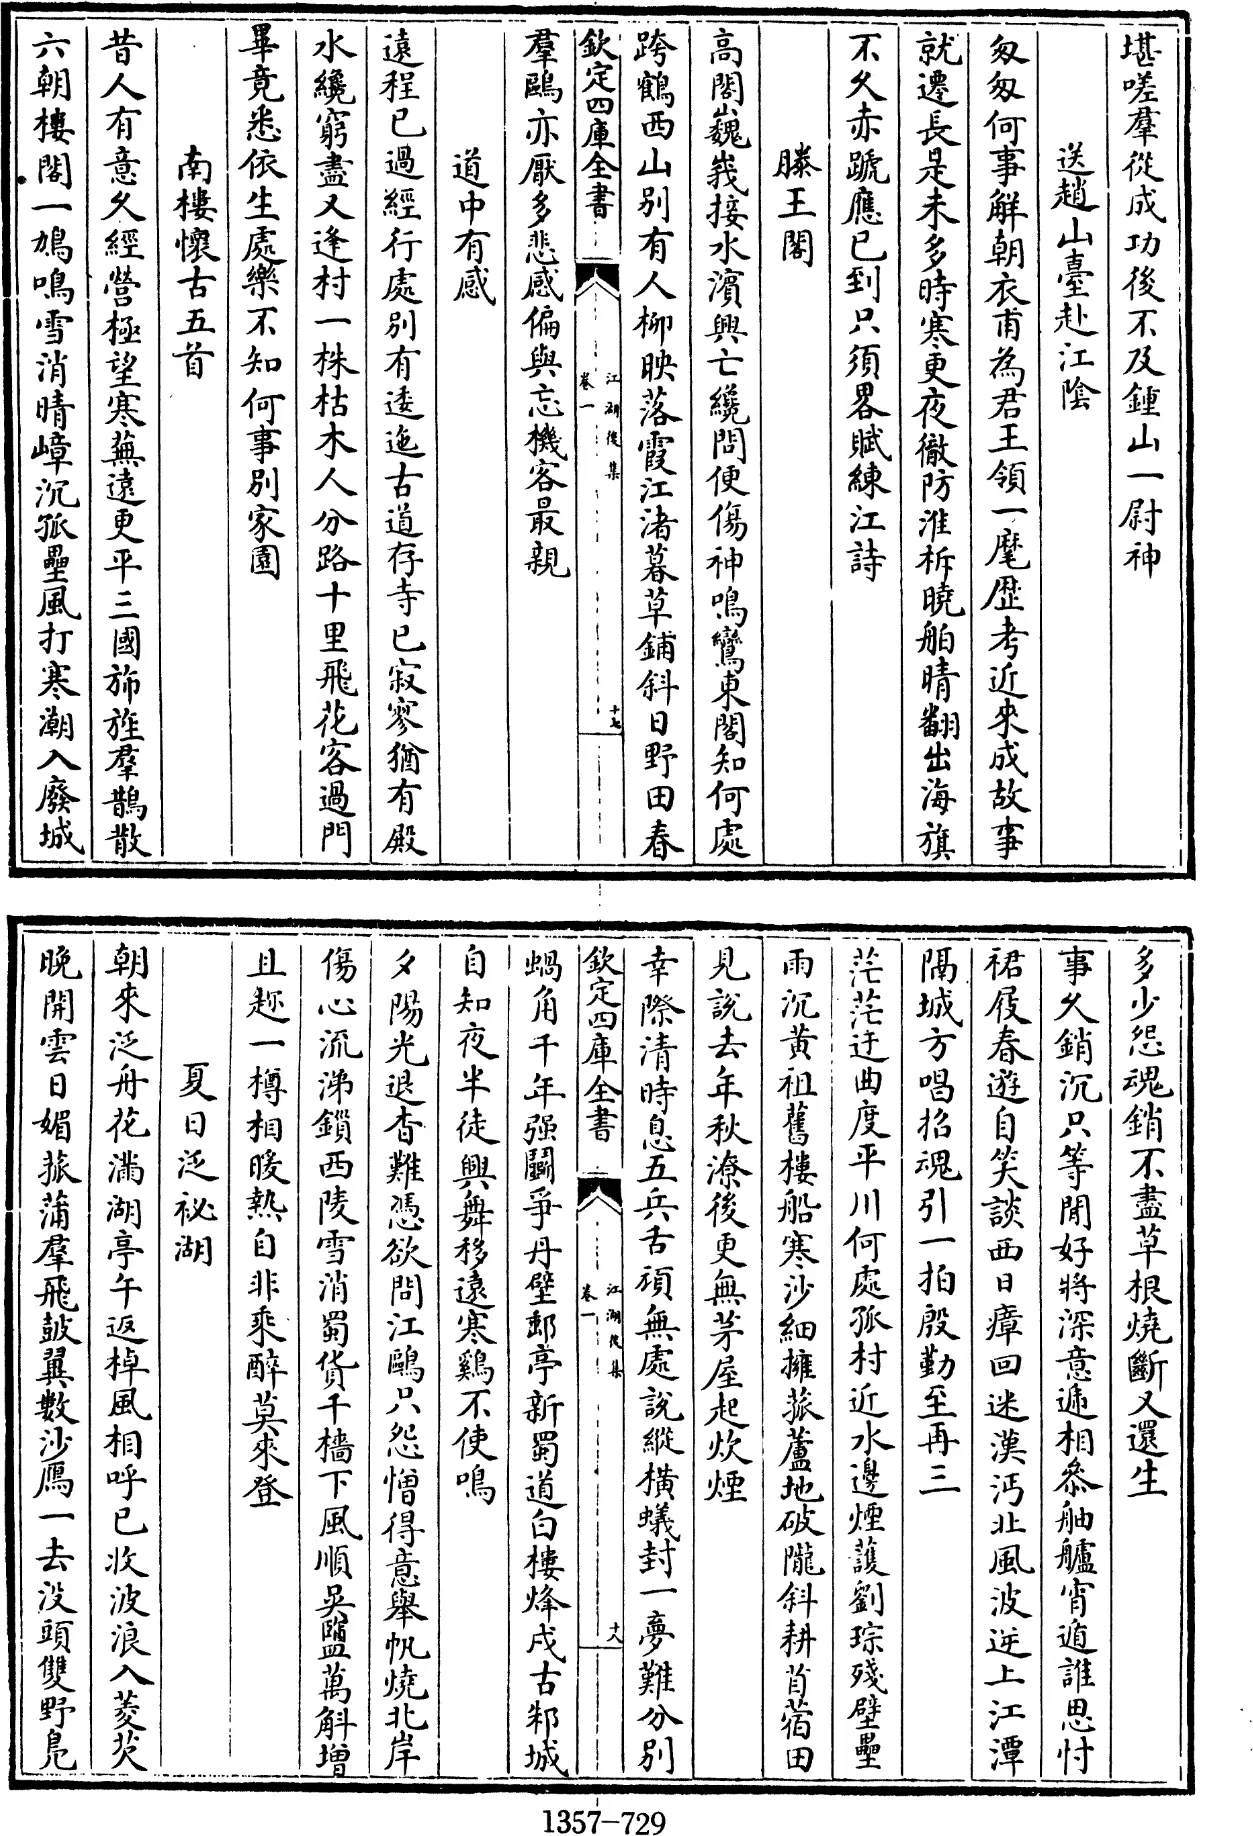 堪嗟羣從成功後不及鍾山一尉神
送趙山臺赴江陰
匆匆何事解朝衣甫為君王領一麾歴考近來成故事
就遷長是未多時寒更夜徹防淮柝曉舶晴翻出海旗
不久赤蹏應已到只須畧賦練江詩
滕王閣
高閣巍峩接水濱興亡纔問便傷神鳴鸞東閣知何處
跨鶴西山别有人柳映落霞江渚暮草鋪斜日野田春
欽定四庫全書
江湖後集
卷一
十七
羣鷗亦厭多悲感偏與忘機客最親
道中有感
遠程已過經行處别有逶迤古道存寺已寂寥猶有殿
水纔窮盡又逢村一株枯木人分路十里飛花客過門
畢竟悉依生處樂不知何事别家園
南樓懷古五首
昔人有意久經營極望寒蕪遠更平三國旆旌羣鵲散
六朝樓閣一鳩鳴雪消晴嶂沉孤壘風打寒潮入廢城
多少怨魂銷不盡草根燒斷又還生
事久銷沉只等閒好將深意逓相叅舳艫宵遁誰思忖
裙屐春遊自笑談西日瘴回迷漢沔北風波逆上江潭
隔城方唱招魂引一拍殷勤至再三
茫茫迂曲度平川何處孤村近水邊煙護劉琮殘壁壘
雨沉黄祖舊樓船寒沙細擁菰蘆地破隴斜耕苜蓿田
見說去年秋潦後更無茅屋起炊煙
幸際清時息五兵舌頑無處說縱横蟻封一夢難分别
欽定四庫全書
江湖後集
卷一
十八
蝸角千年强鬭爭丹壁郵亭新蜀道白樓烽戍古邾城
自知夜半徒興舞移遠寒鷄不使鳴
夕陽光退杳難憑欲問江鷗只怨憎得意舉帆燒北岸
傷心流涕鎻西陵雪消蜀貨千檣下風順吳鹽萬斛增
且趂一樽相暖熱自非乘醉莫來登
夏日泛祕湖
朝來泛舟花滿湖亭午返棹風相呼已收波浪入菱茨
晚開雲日媚菰蒲羣飛鼓翼數沙鴈一去没頭雙野鳬
1357-729